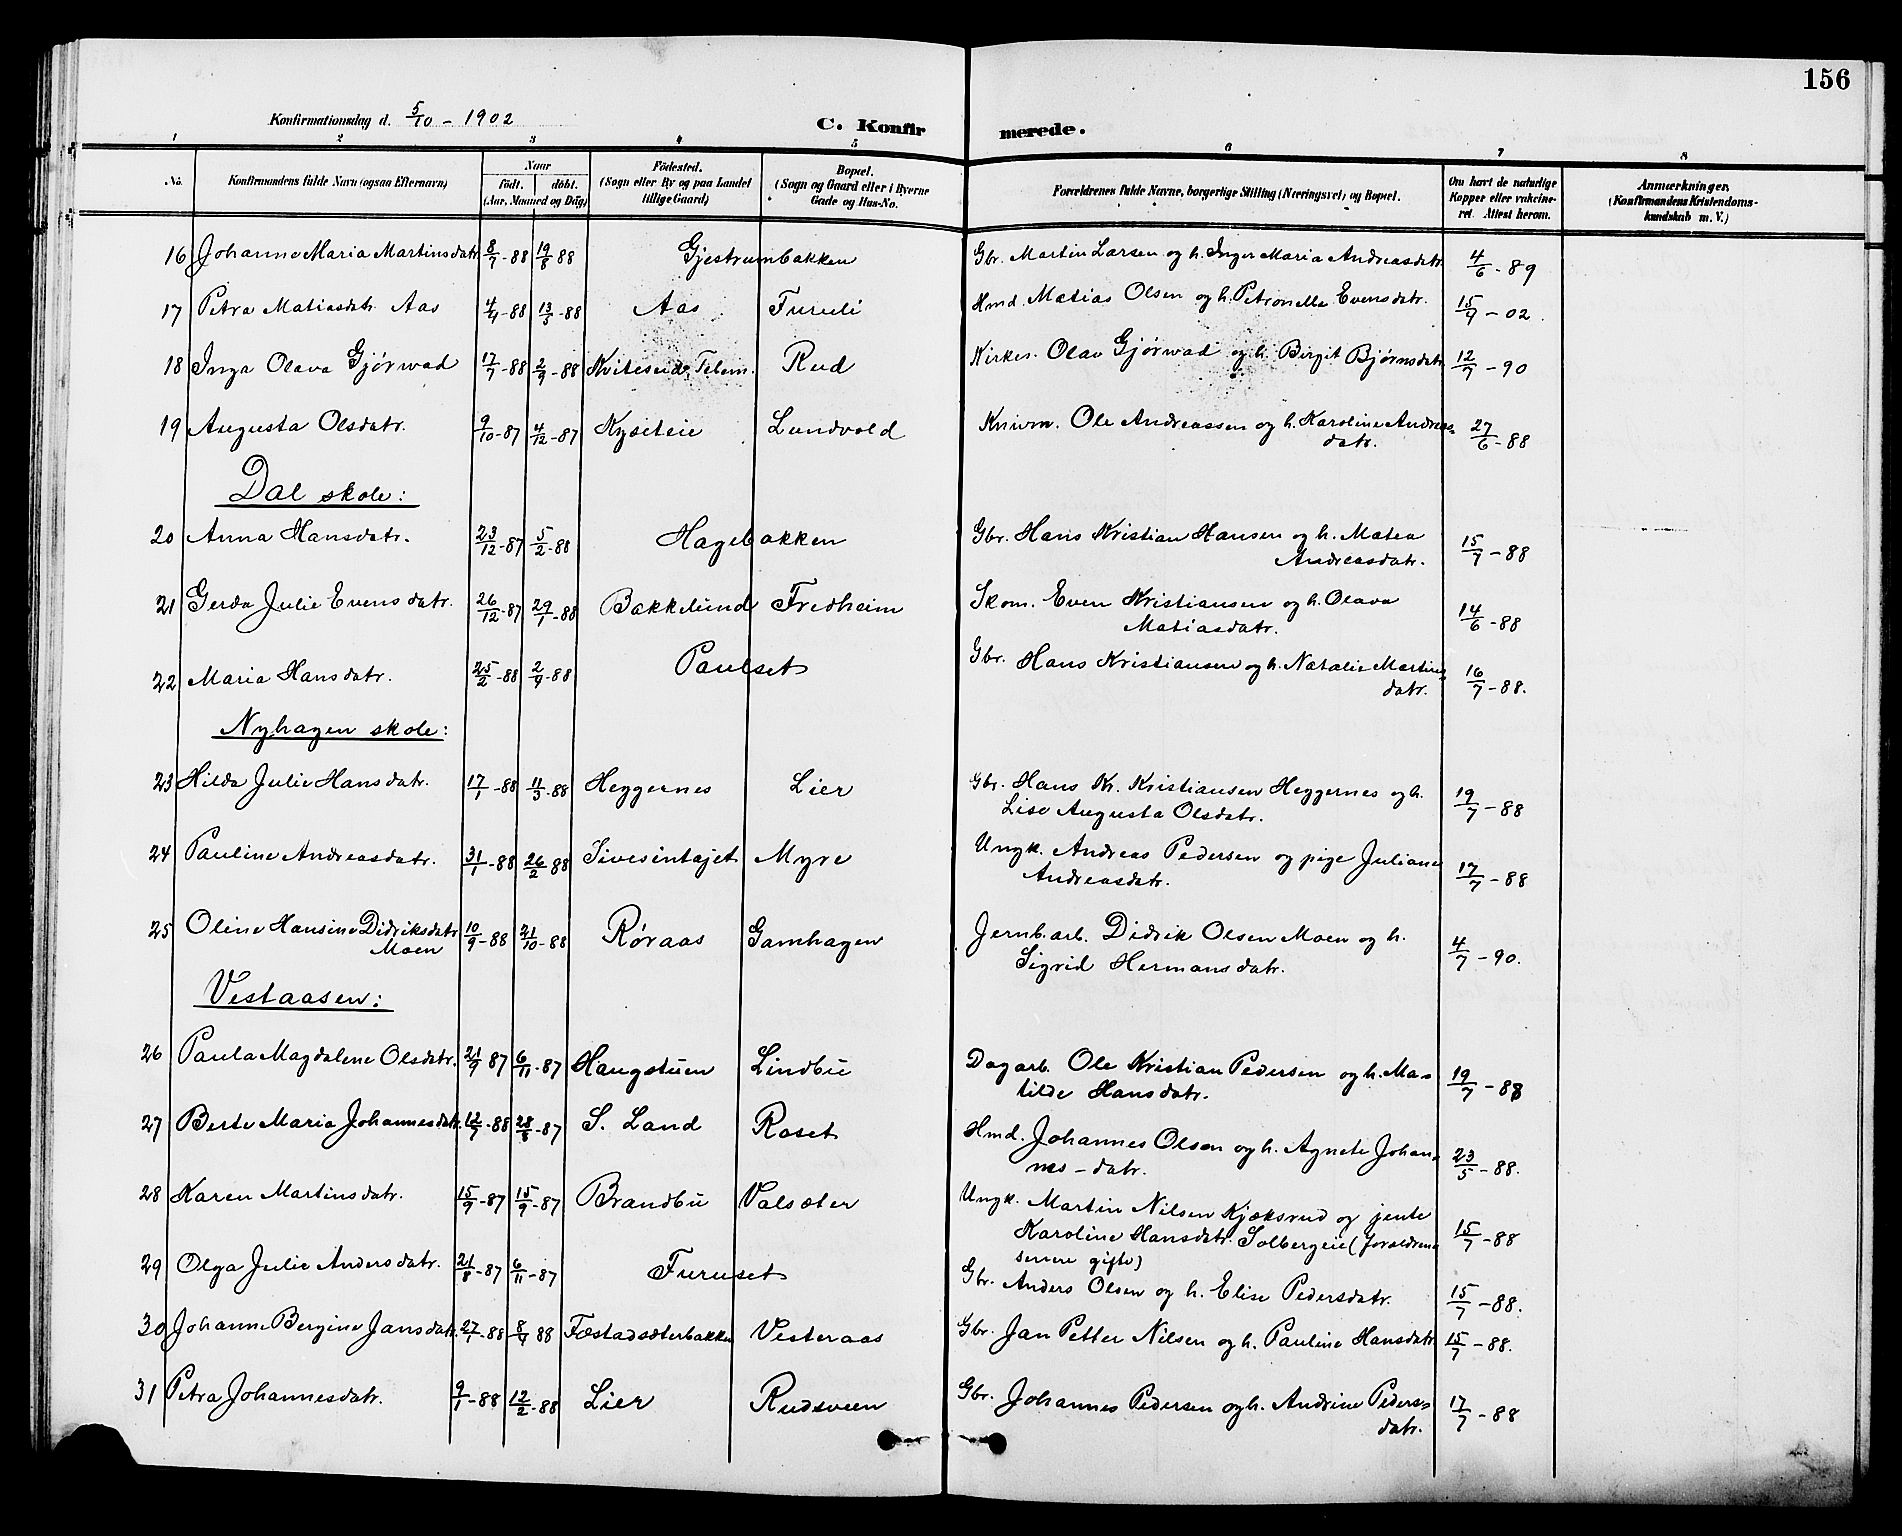 156
Konfirmationsdag d. 5/10 - 1902
C. Konfirmerede.
1 2 3 4 5 6 7 8
No. Konfirmandens fulde Navn (ogsaa Efternavn) Naar födt. döbt. (Aar, Maaned og Dag) Födested. (Sogn eller By og paa Landet tillige Gaard) Bopæl. (Sogn og Gaard eller i Byerne Gade og Hus-No. Forældrenes fulde Navne, borgerlige Stilling (Næringsvei) og Bopæl. Om havt de naturlige Kopper eller vaccineret. Attest herom. Anmærkninger. (Konfirmandens Kristendomskundskab m. V.)
16 Johanne Maria Martinsdatr. 8/7-88 19/8 88 Gjestrumbakken Gbr. Martin Larsen og h. Inger Maria Andreasdatr. 4/6-89
17 Petra Matiasdatr. Aas 4/4-88 13/5-88 Aas Furuli Hmd. Matias Olsen og h. Petronelle Evensdatr. 15/9-02.
18 Inga Olava Gjørwad 17/7-88 2/9-88 Kviteseid, Telem. Rud Kirkes. Olav Gjørwad og h. Birgit Bjørnsdatr. 12/7-90
19 Augusta Olsdatr. 9/10-87 4/12-87 Kyseteie Lundvold Knivm. Ole Andreassen og h. Karoline Andreas=
datr. 27/6-88
Dal skole:
20 Anna Hansdatr. 23/12-87 5/2-88 Hagebakken Gbr. Hans Kristian Hansen og h. Matea
Andreasdatr. 15/7-88
21 Gerda Julie Evensdatr. 26/12-87 29/1-88 Bakkelund Fredheim Skom. Even Kristiansen og h. Olava
Matiasdatr. 14/6-88
22 Maria Hansdatr. 25/2-88 2/4-88 Paulset Gbr. Hans Kristiansen og h. Natalie Martins=
datr. 16/7-88.
Nyhagen skole:
23 Hilda Julie Hansdatr. 17/1-88 11/3-88 Heggernes Lier Gbr. Hans Kr. Kristiansen Heggernes og h.
Lise Augusta Olsdatr. 19/7-88
24 Pauline Andreasdatr. 31/1-88 26/2 88 Sivesintajet Myre Ungk. Andreas Pedersen og pige Juliane
Andreasdatr. 17/7-88
25 Oline Hansine Didriksdatr.
Moen 10/9-88 21/10-88 Røraas Gamhagen Jernb.arb. Didrik Olsen Moen og h.
Sigrid Hermansdatr. 4/7-90.
Vestaasen:
26 Paula Magdalene Olsdatr. 21/9 87 6/11-87 Haugstuen Lindbu Dagarb. Ole Kristian Pedersen og h. Ma=
tilde Hansdatr. 19/7-88
27 Berte Maria Johannesdatr. 12/7-88 28/8-87 S. Land Roset Hmd. Johannes Olsen og h. Agnete Johan=
nes-datr. 23/5-88.
28 Karen Martinsdatr. 15/9-87 15/9-87 Brandbu Valsæter Ungk. Martin Nilsen Kjæksrud og jente
Karoline Hansdatr. Solbergeie (forældrene
senere gifte) 15/7-88
29 Olga Julie Andersdatr. 21/8-87 6/11-87 Furuset Gbr. Anders Olsen og h. Elise Pedersdatr. 15/7-88.
30 Johanne Bergine Jansdatr. 27/1-88 8/4 88 Fæstadsæterbakken Vesteraas Gbr. Jan Petter Nilsen og h. Pauline Hansdatr. 15/7-88.
31 Petra Johannesdatr. 9/1-88 12/2-88 Lier Rudsveen Gbr. Johannes Pedersen og h. Andrine Peders=
datr. 17/7-88